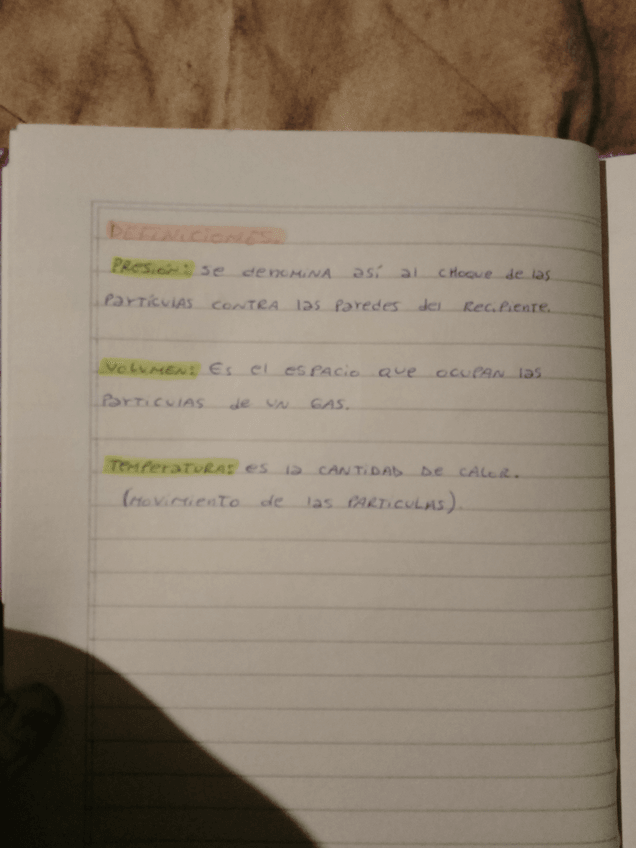 DEFINICIONES.
PRESIÓN: se denomina así al choque de las
partículas contra las paredes del recipiente.
VOLUMEN: Es el espacio que ocupan las
particulas de un gas.
TEMPERATURA: es la cantidad de calor.
(movimiento de las particulas).